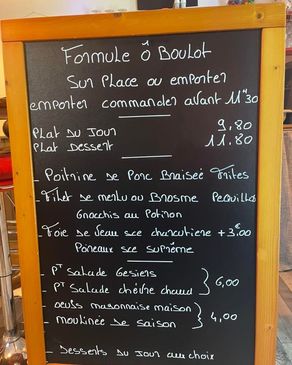 Formule Ô Boulot
Sur Place ou emporter
emporter commander avant 11"30
Plat du Jour 9,80
Plat Dessert 11.80
- Poitrine de Porc Braisée Frites
- Filet de merlu ou Brosme Pequillos
Gnocchis au Potiron
- Foie de Veau sce charcutiere + 3€00
Poireaux sce suprême
- Pt Salade Gesiers
- Pt Salade chèvre chaud } 6,00
- oeufs mayonnaise maison
- moulinée de saison } 4,00
- Desserts du Jour au choix